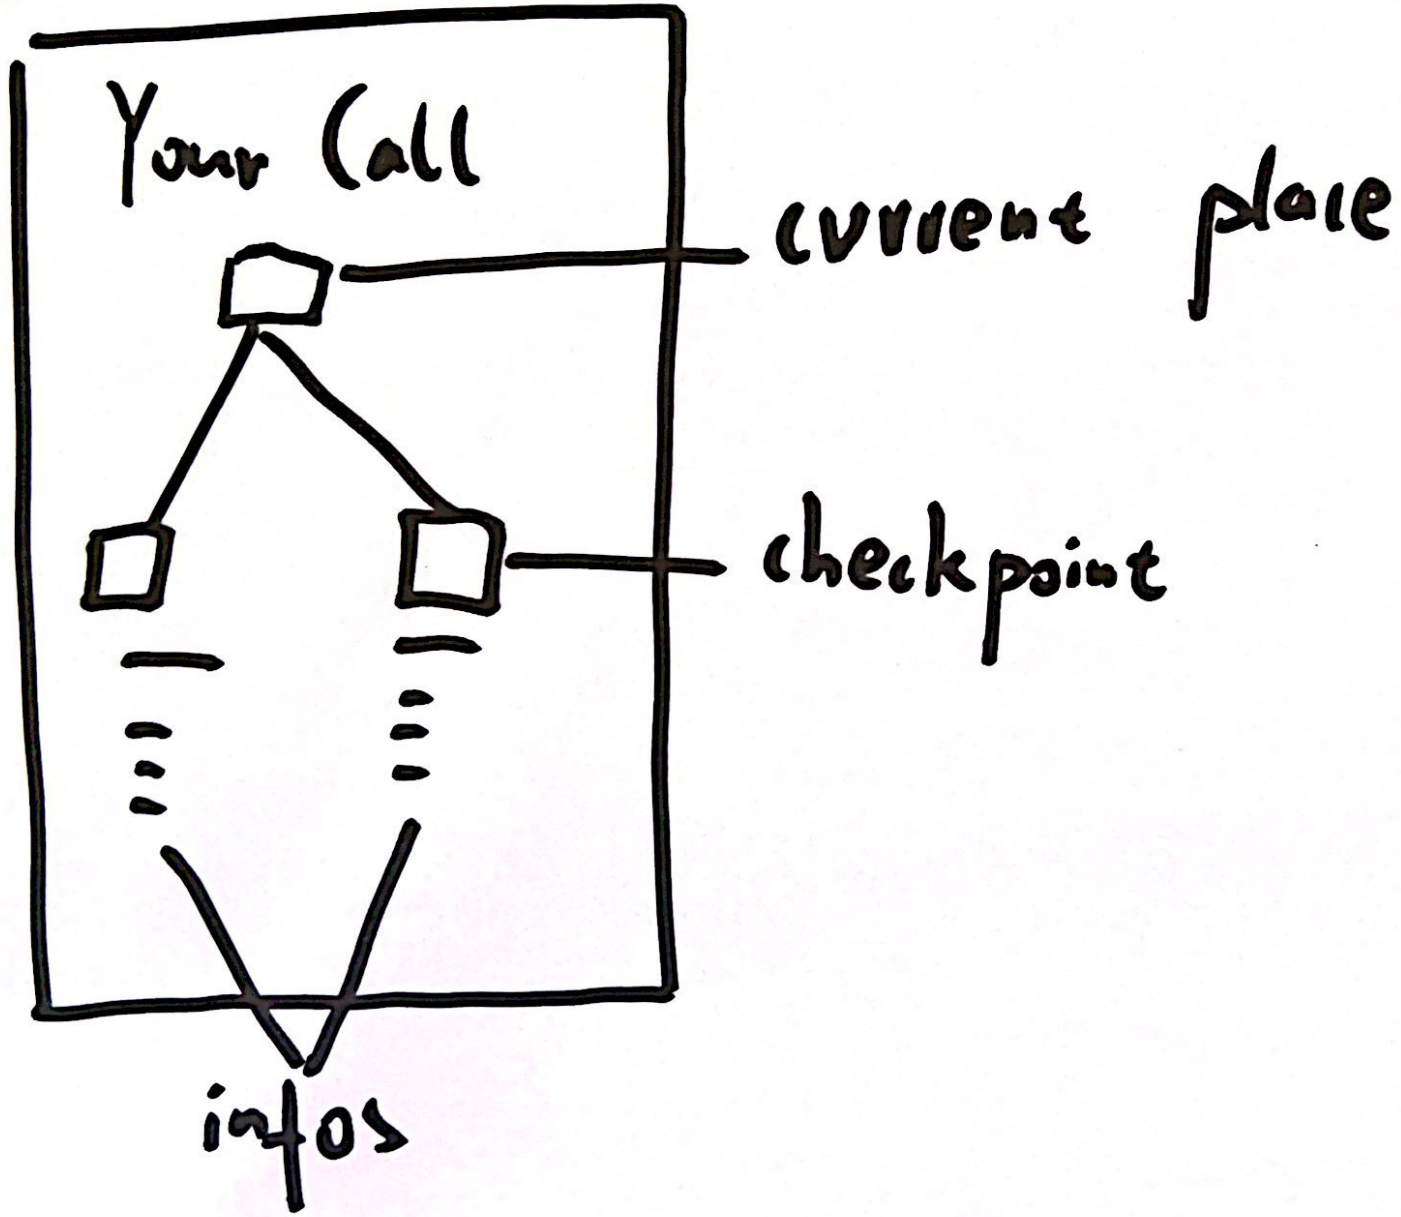 Your Call
current place
checkpoint
infos